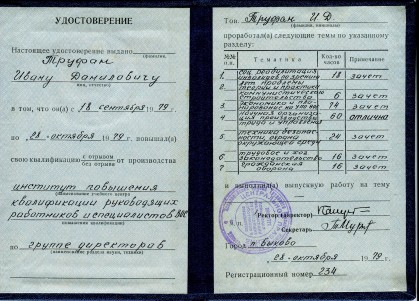 УДОСТОВЕРЕНИЕ
Настоящее удостоверение выдано
Труфан
(фамилия,
Ивану Даниловичу
имя, отчество)
в том, что он(а) с 18 сентября 1979 г.
по 28 октября 1979 г. повышал(а)
свою квалификацию с отрывом от производства
без отрыва
институт повышения
квалификации руководящих
работников и специалистов
(повышения квалификации)
по группе директоров
Тов. Труфан И.Д.
(фамилия, инициалы)
проработал(а) следующие темы по указанному
разделу:
№№ п.п. Тематика Кол-во часов Примечание
1 18 зачет
2 теории и практики
коммунистического
строительства 6 зачет
3 экономика и 74 зачет
4 научная
производства
труда и управления 60 отлично
5 техника безопас-
ности, охрана
окружающей среды 24 зачет
6 трудовое и хоз.
законодательство 16 зачет
7 гражданская
оборона 16 зачет
и выполнил(а) выпускную работу на тему
Ректор (директор)
Секретарь
Город п. Быково
28 октября 1979 г.
Регистрационный номер 234